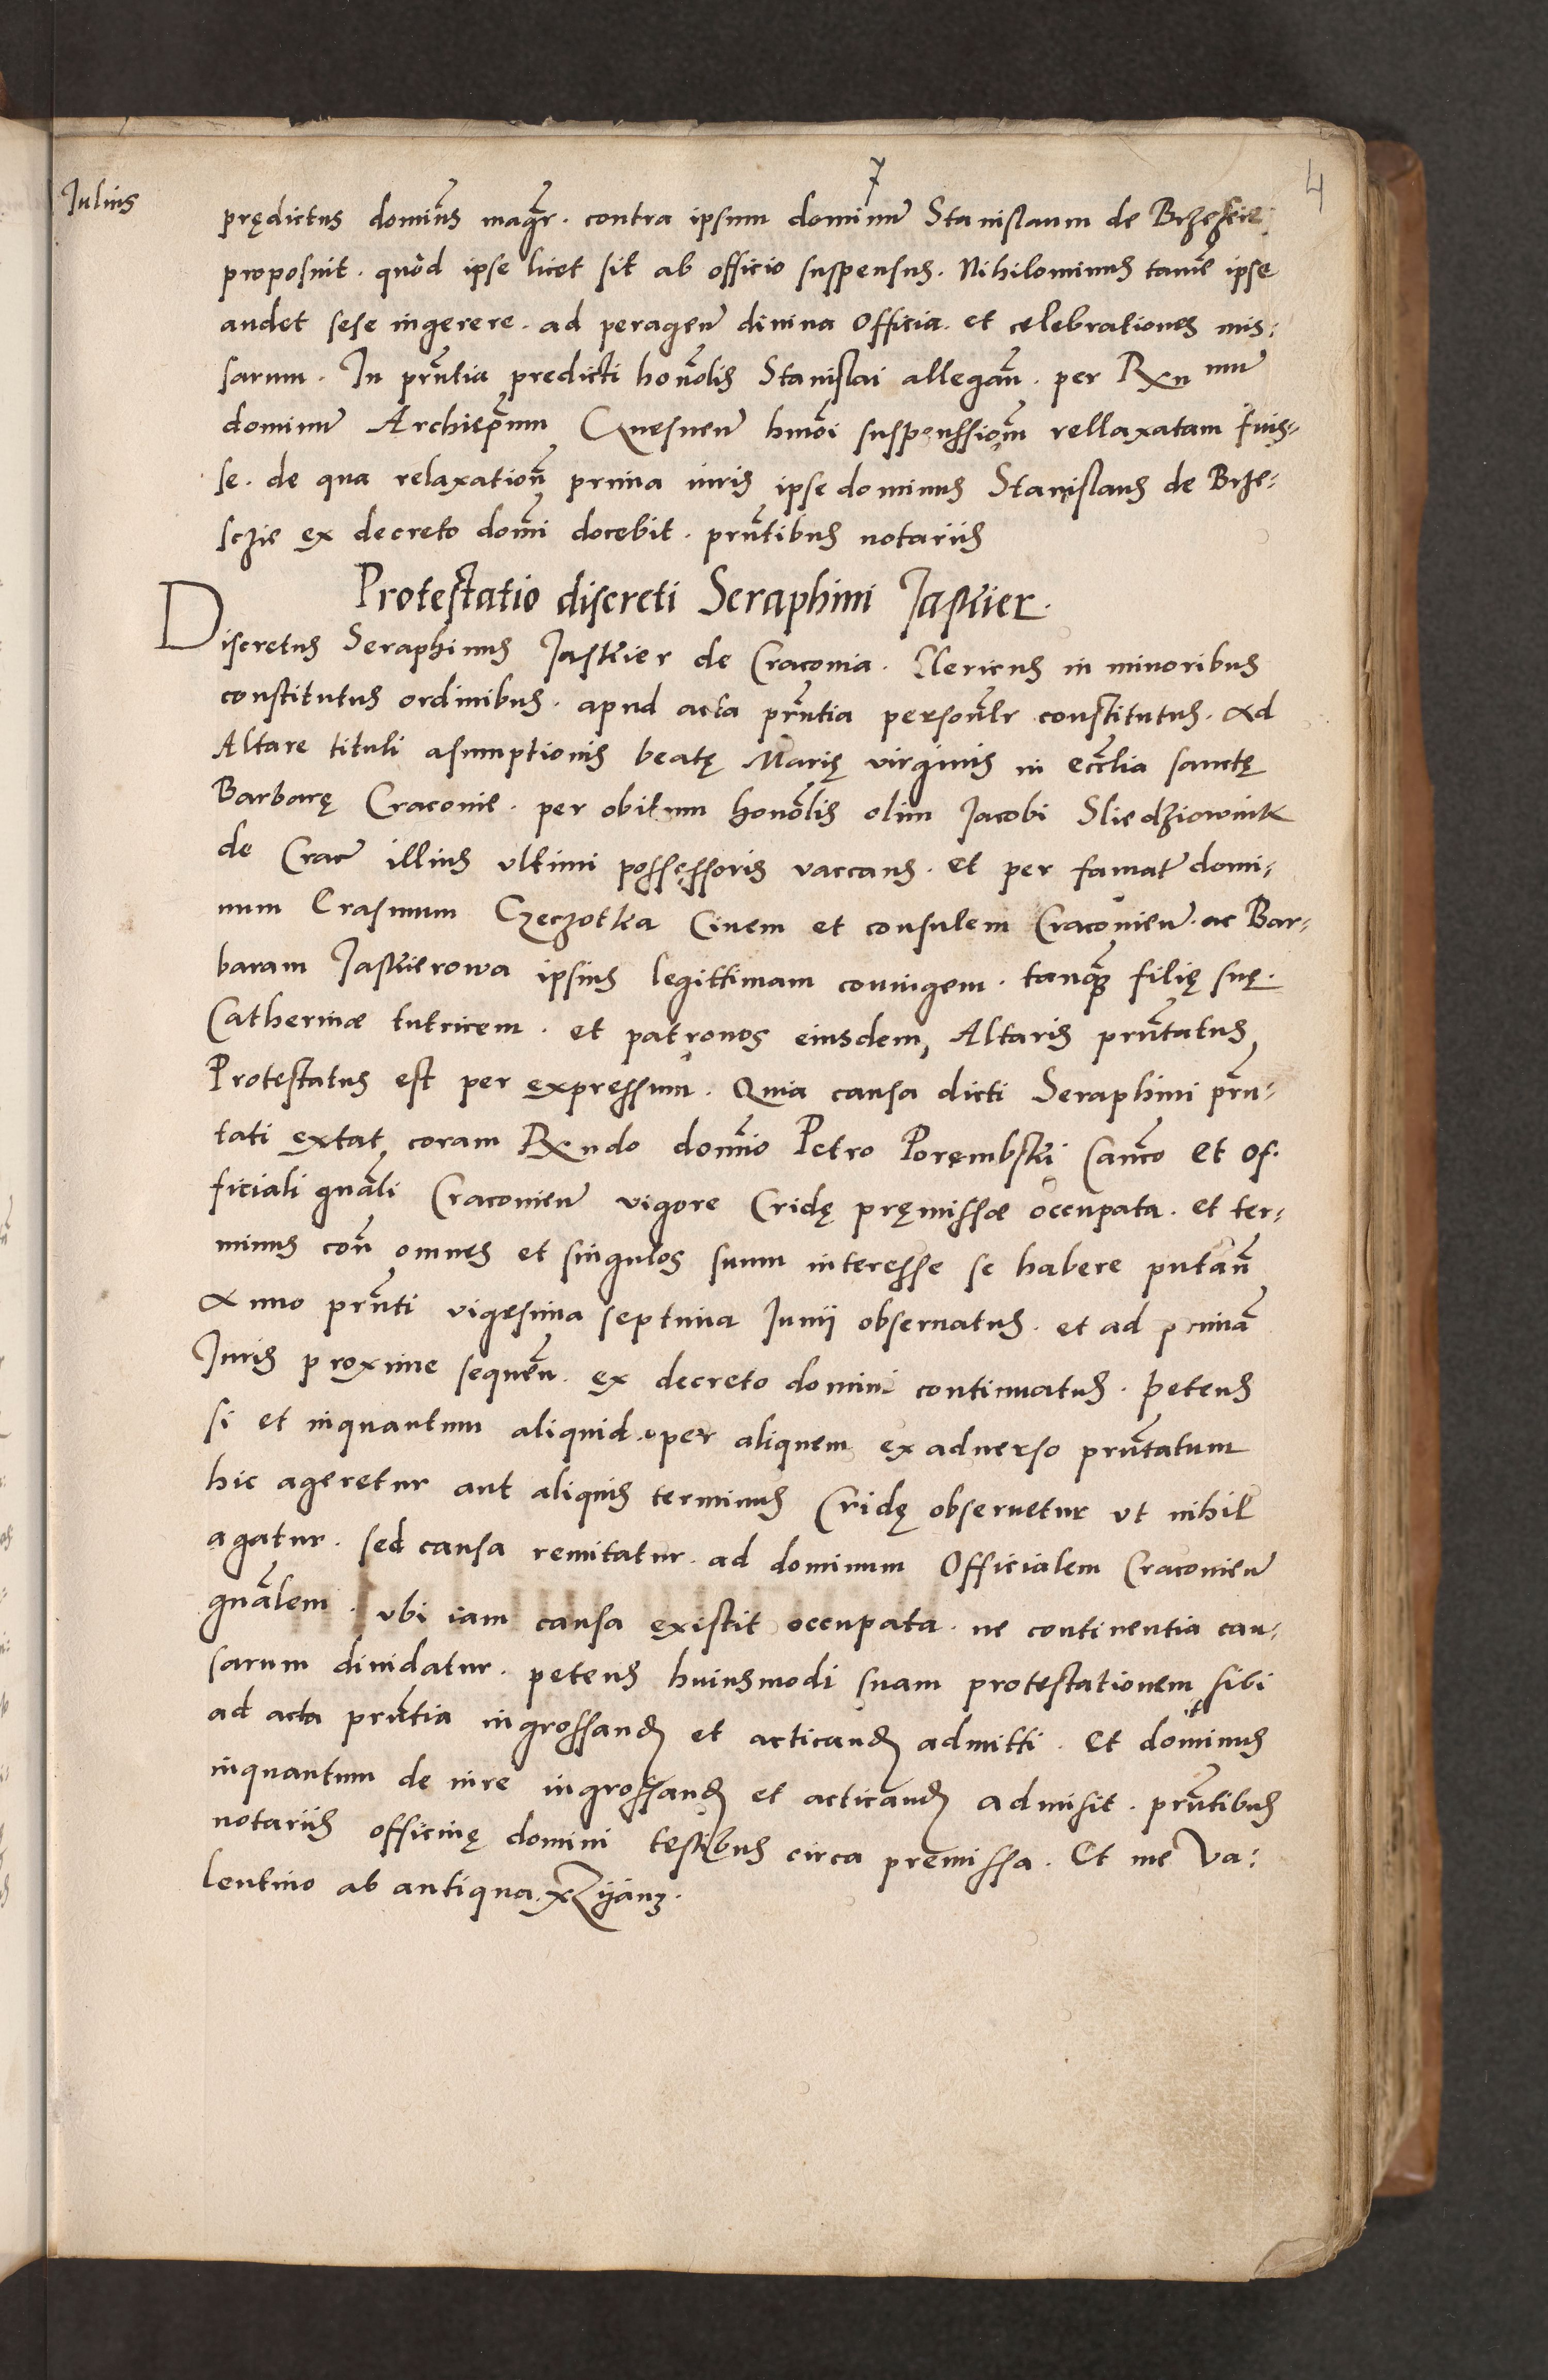 7
4
Iulius
prędictus dominus magr̃. contra ipsum dominũ Stanislaum de Brzeszcie
proposuit. quod ipse licet sit ab officio suspensus. Nihilominus tamẽ ipse
audet sese ingerere. ad peragen̄ diuina officia. et celebrationes mis:
sarum. In prñtia predicti honõlis Stanislai allegañ. per Rxn mũ
dominũ Archiepũm Gnesnen̄ hmõi suspenssionẽm rellaxatam fuis-
se. de qua relaxationẽ prima iuris ipse dominus Stanislaus de Brze-
sczie ex decreto domĩ docebit. prñtibus notariis
Protestatio discreti Seraphini Jaskier.
Discretus Seraphinus Jaskier de Cracouia. Clericus in minoribus
constitutus ordinibus. apud acta prñtia persoñlr constitutus. ad
Altare tituli asumptionis beatę Marię virginis in eccłia sanctę
Barbarę Cracouie. per obitum honõlis olim Jacobi Sliedziownik
de Crac̄ illius vltimi possessoris vaccans. et per famat̄ domi:
num Erasmum Czeczotka Ciuem et consulem Cracouien̄. ac Bar-
baram Jaskierowa ipsius legittimam coniugem. tanq̃ filię suę.
Catherinæ tutricem. et patronos eiusdem Altaris prñtatus
Protestatus est per expressum. Quia causa dicti Seraphini prñ-
tati extat coram Rxndo domĩo Petro Porembski Cañco et of-
ficiali gnãli Cracouien̄ vigore Cridę pręmissæ occupata. et ter-
minus coñ omnes et singulos suum interesse se habere putañ
Anno prñti vigesima septima Iunii obseruatus. et ad primã
Iuris proxime sequeñ. ex decreto domini continuatus. petens
si et inquantum aliquid per aliquem ex aduerso prñtatum
hic ageretur aut aliquis terminus Cridę obseruetur vt nihil
agatur. sed causa remitatur. ad dominum Officialem Cracouien̄
gnãlem. vbi iam causa existit occupata. ne continentia cau-
sarum diuidatur. petens huiusmodi suam protestationem sibi
ad acta prñtia ingrossand̃ et acticand̃ admitti. Et dominus
inquantum de iure ingrossand̃ et acticand̃ admisit. prñtibus
notariis officinę domini testibus circa premissa. Et me Va:
lentino ab antiqua